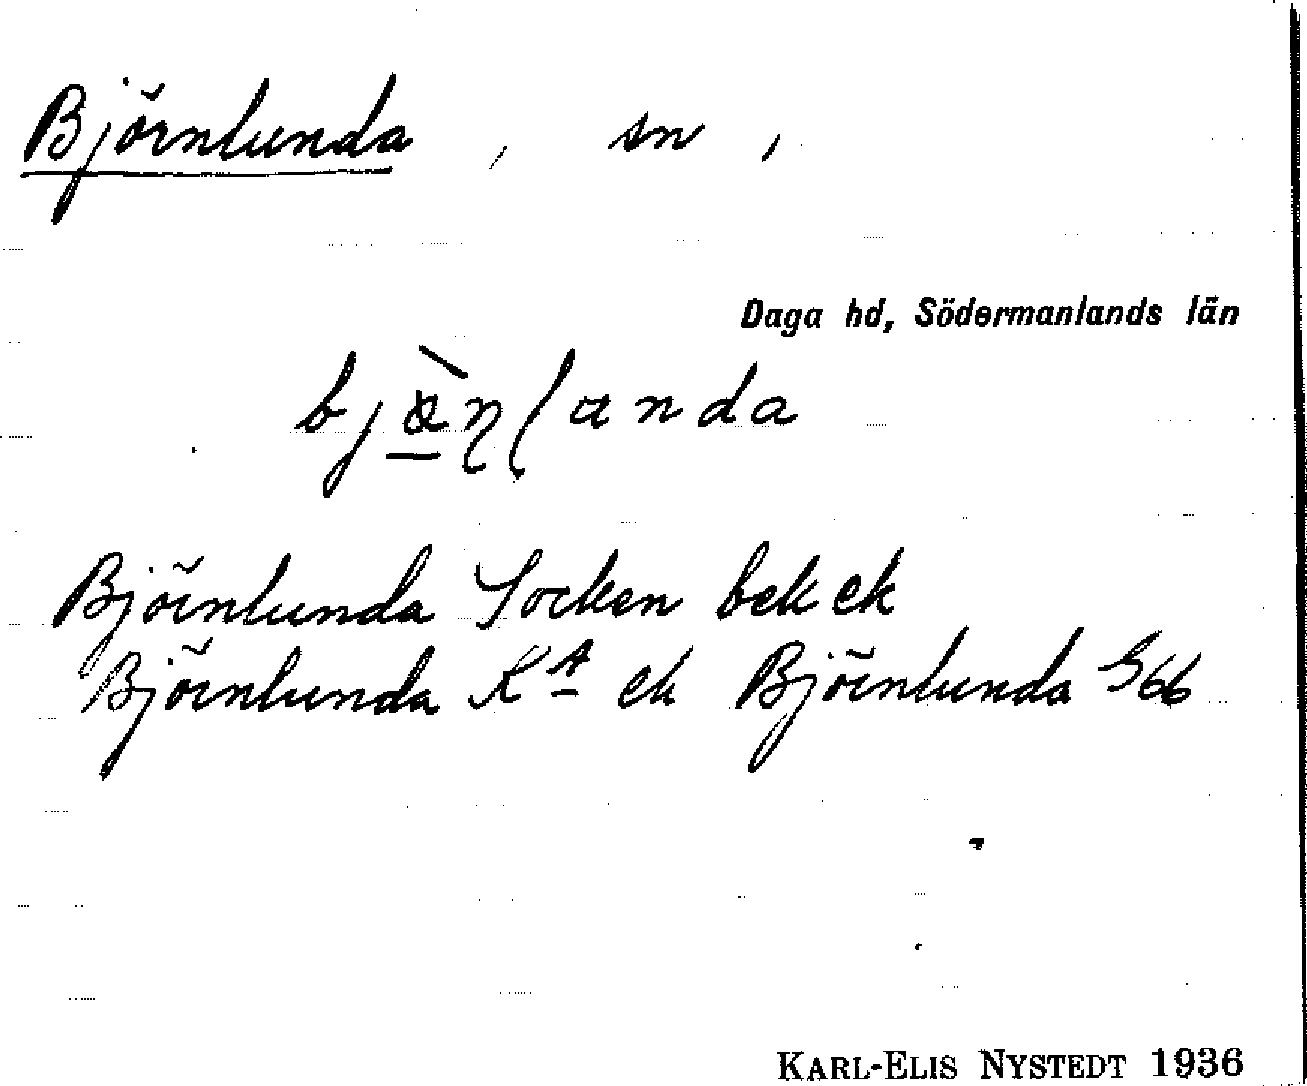 Björnlunda, sn,
Daga hd, Södermanlands län
Björnlunda Socken bek ek
Björnlunda Ka ek Björnlunda G66
KARL-ELIS NYSTEDT 1936